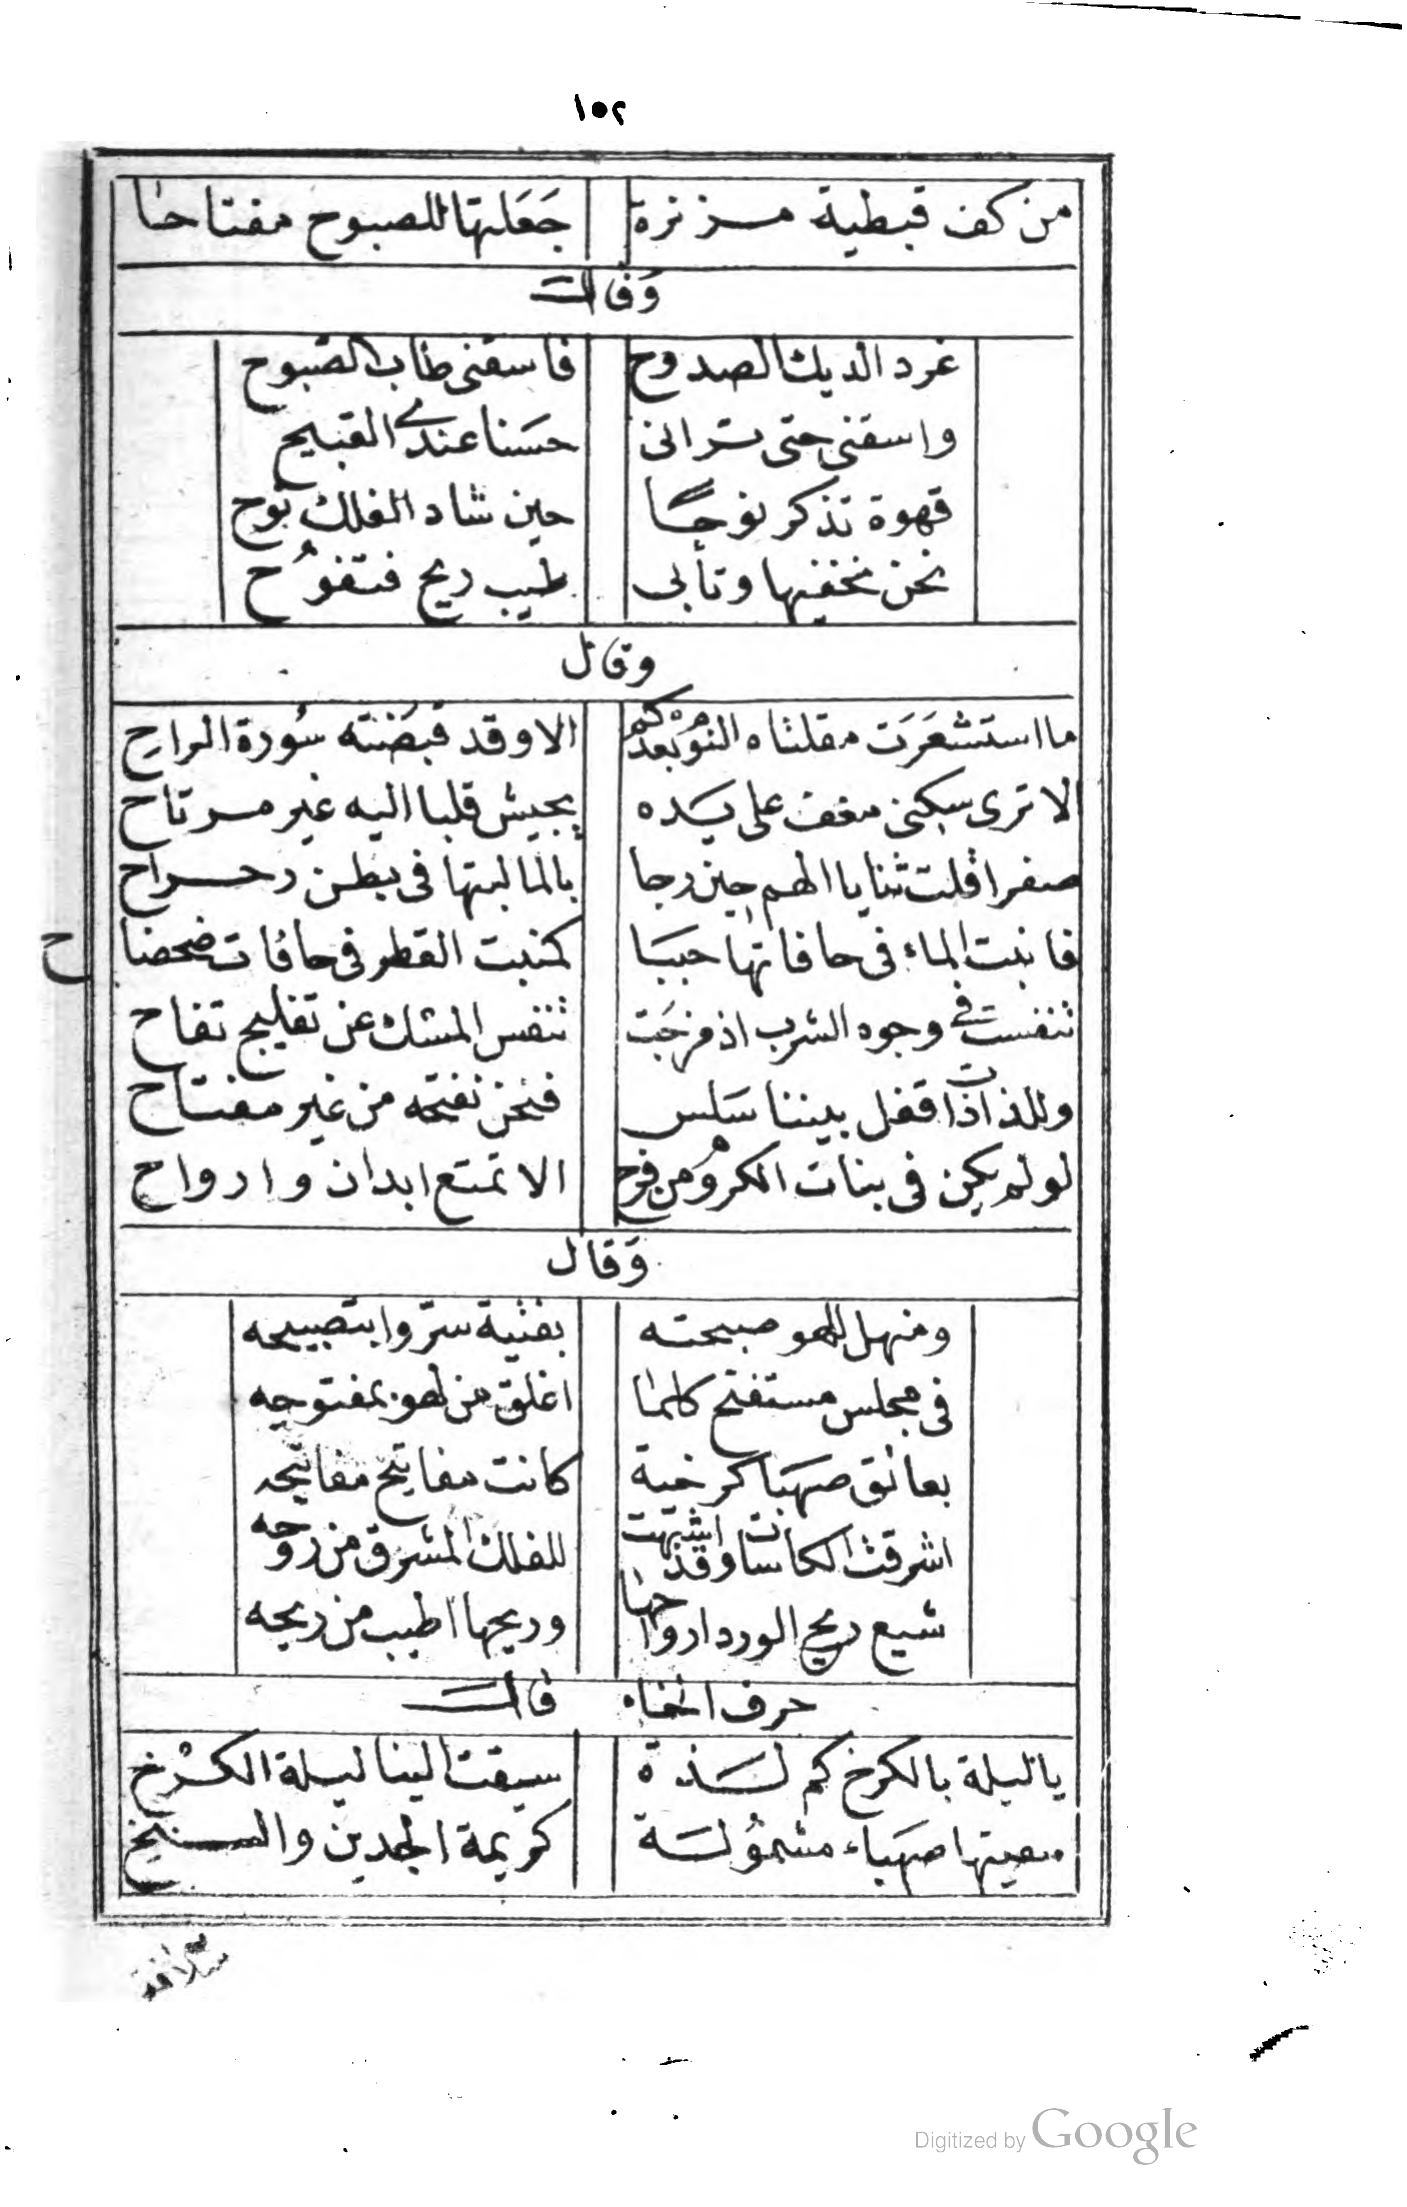 ١٠٢
من كف قبطية مزنرة جَعَلتها للصبوح مفتاحا
وَقال
غرد الديك الصدوح فاسقنى طاب الصبوح
واسقنى حتى ترانى حسَنا عندى القبيح
قهوة تذكر نوحًا حين شاد الفلك نوح
نحن نخفيها وتأبى طيب ريح فتفوُح
وقال
ما استشعَرَت مقلتاه النوم بعدكم الا وقد قبضَته سُورة الراح
الا ترى سكنى مغف على يَده يجيش قلبا اليه غير مرتاح
صفرا فلت ثنايا الهم حين رجا بالما لبتها فى بطن رحراح
فانبت الماء فى حافاتها حببَا كمنبت القطر فى حافات ضحضاح
تنفست فى وجوه الشرب اذ مزجَت تنفس المسك عن تفليج تفاح
وللذاذات قفل بيننا سَلس فنحن نفتحه من غير مفتاح
لو لم يكن فى بنات الكرُوم من فرح الا تمتع ابدان وارواح
وَقال
ومنهل للهو صبحته بفتية سرّوا بتصبيحه
فى مجلس مستفتح كلما اغلق من لهو بمفتوحه
بعاتق صهبَا كرخية كانت مفاتيح مفاتيحه
اشرقت الكاسات وقد اشبهت للفلك المشرق من روحه
شيع ريح الورد ارواحها وريحها اطيب من ريحه
حرف الخاء قال
يا ليلة بالكرخ كم لَذة سيقت الينا ليلة الكرْخ
صهبَاء مشموُلَة كريمة الجدين والسنخ
سلافة
Digitized by Google